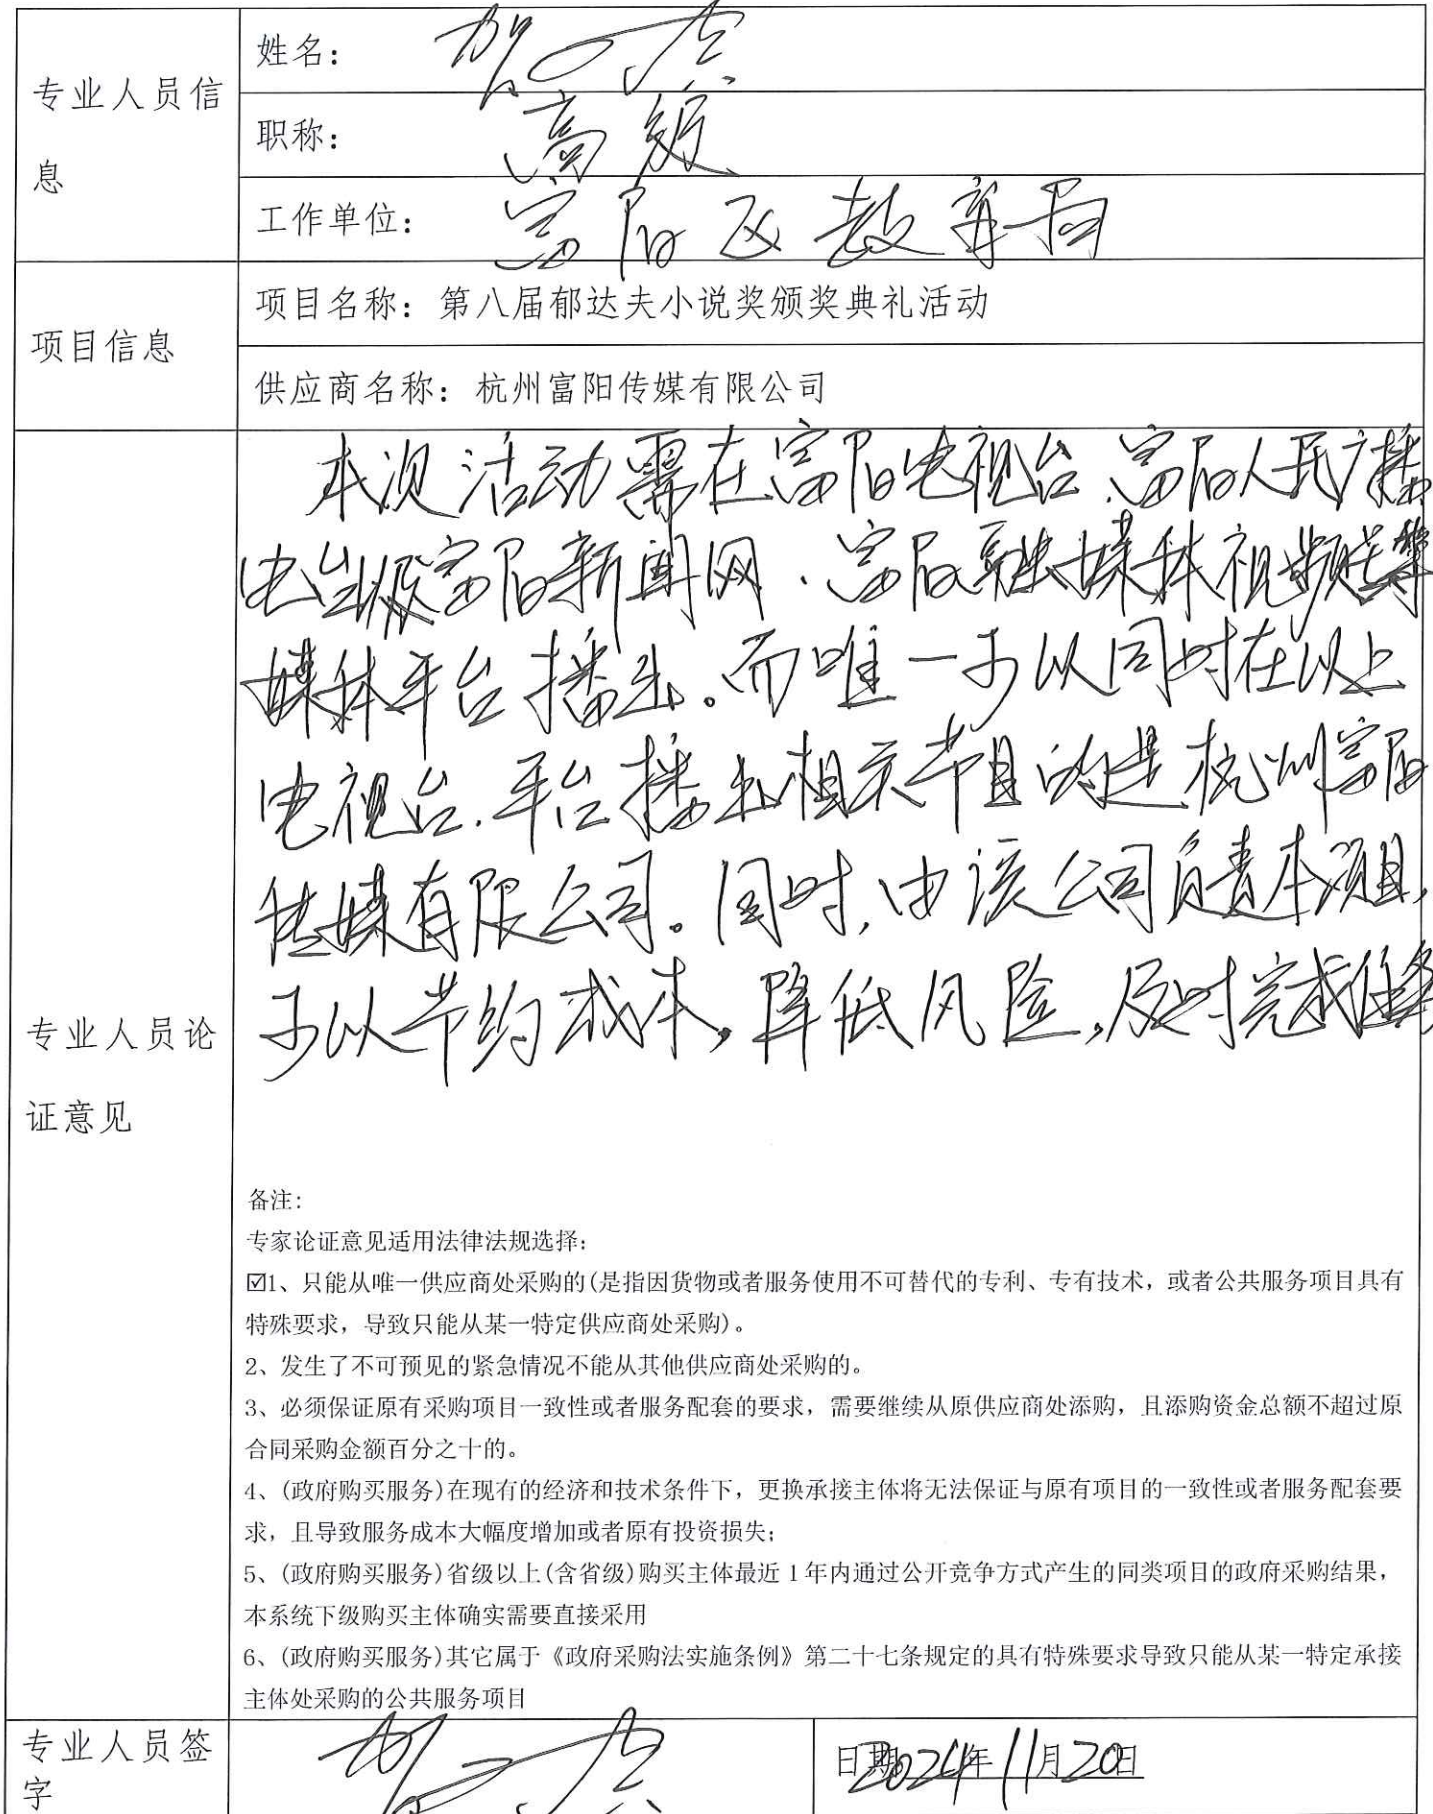 专业人员信
息
姓名：
职称：高级
工作单位：富阳区教育局
项目信息
项目名称：第八届郁达夫小说奖颁奖典礼活动
供应商名称：杭州富阳传媒有限公司
专业人员论
证意见
本次活动需在富阳电视台、富阳人民广播
电台、富阳新闻网、富阳融媒体视频等
媒体平台播出。而唯一可以同时在以上
电视台、平台播出相关节目的是杭州富阳
传媒有限公司。同时，由该公司负责本项目，
可以节约成本，降低风险，及时完成任务
备注：
专家论证意见适用法律法规选择：
☑1、只能从唯一供应商处采购的(是指因货物或者服务使用不可替代的专利、专有技术，或者公共服务项目具有
特殊要求，导致只能从某一特定供应商处采购)。
2、发生了不可预见的紧急情况不能从其他供应商处采购的。
3、必须保证原有采购项目一致性或者服务配套的要求，需要继续从原供应商处添购，且添购资金总额不超过原
合同采购金额百分之十的。
4、(政府购买服务)在现有的经济和技术条件下，更换承接主体将无法保证与原有项目的一致性或者服务配套要
求，且导致服务成本大幅度增加或者原有投资损失；
5、(政府购买服务)省级以上(含省级)购买主体最近 1 年内通过公开竞争方式产生的同类项目的政府采购结果，
本系统下级购买主体确实需要直接采用
6、(政府购买服务)其它属于《政府采购法实施条例》第二十七条规定的具有特殊要求导致只能从某一特定承接
主体处采购的公共服务项目
专业人员签
字
日期2024年11月20日